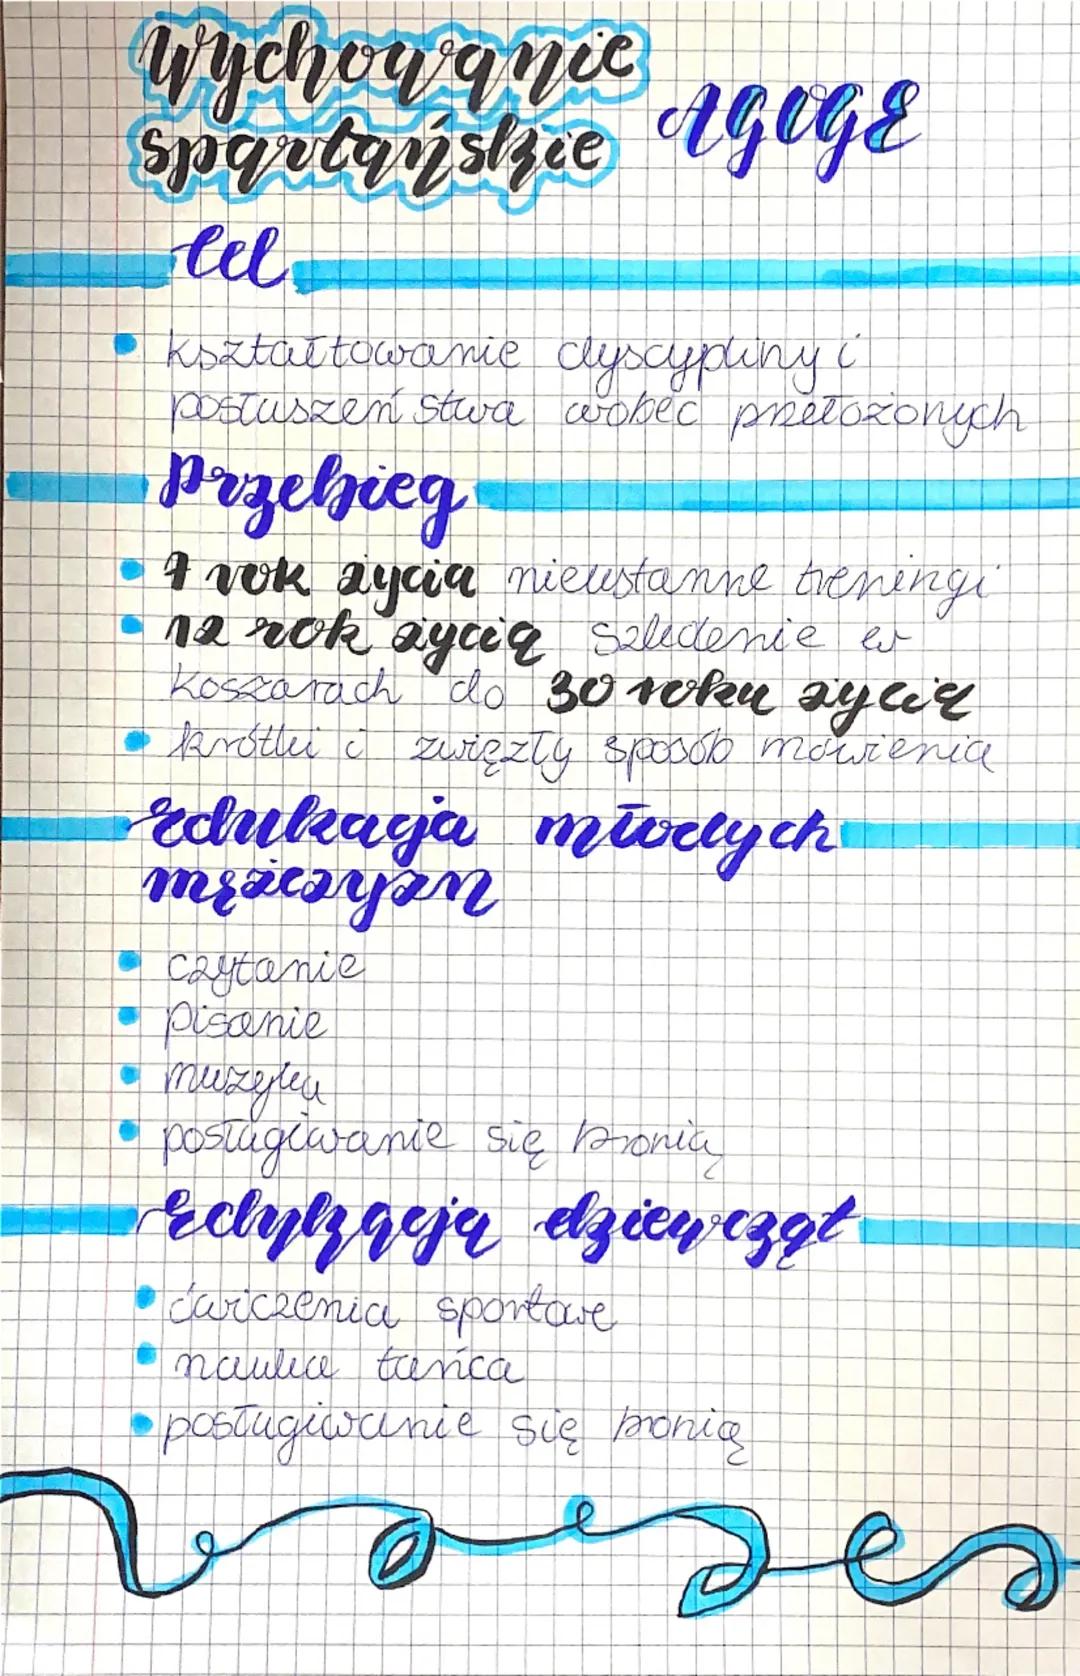 Wychowanie
spartańskie AGOGE
Cel
• kształtowanie dyscypliny i
posłuszeństwa wobec przełożonych
Przebieg
• 7 rok życia nieustanne treningi
• 12 rok życia szkolenie w
koszarach do 30 roku życia
• krótki i zwięzły sposób mówienia
Edukacja młodych
mężczyzn
• czytanie
• pisanie
• muzyka
• posługiwanie się bronią
Edukacja dziewcząt
• ćwiczenia sportowe
• nauka tańca
• posługiwanie się bronią